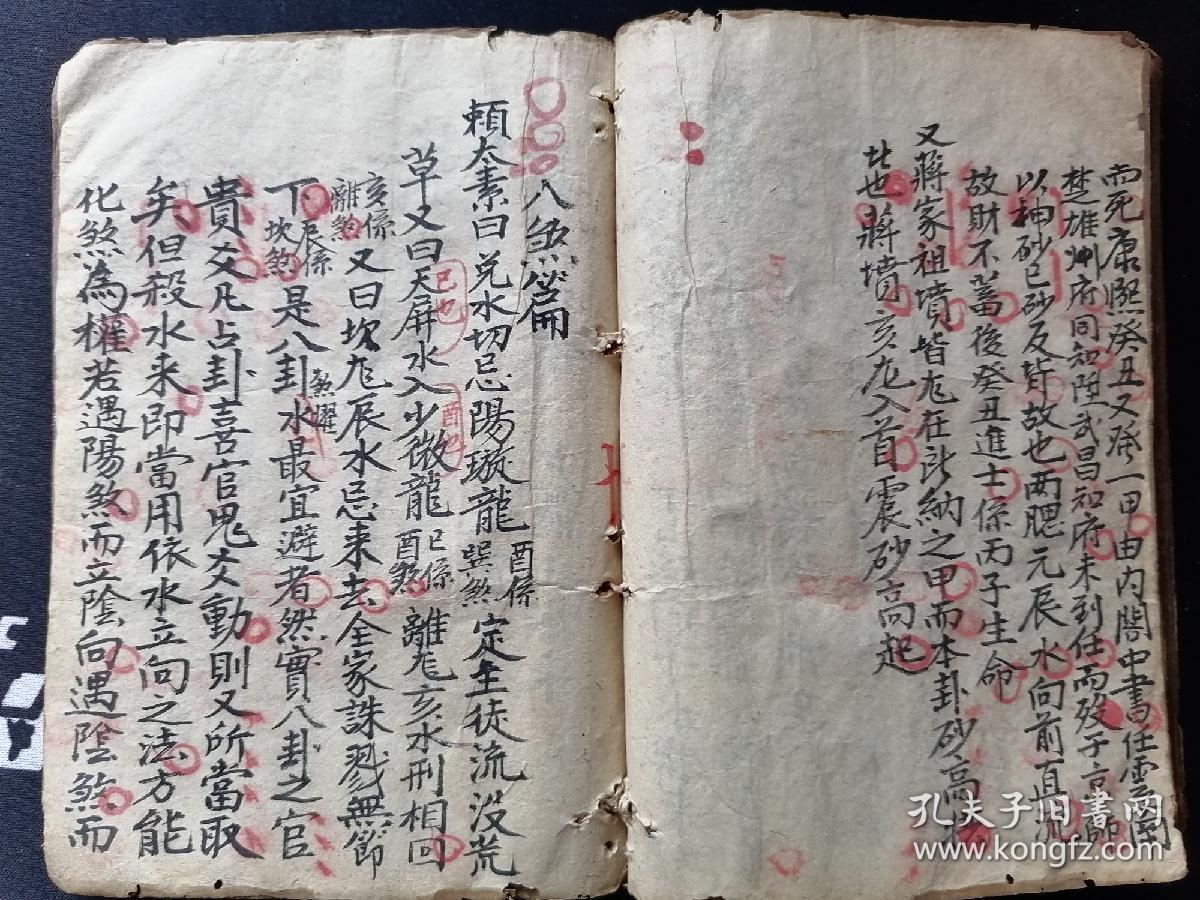 而死康熙癸丑又發一甲由内閣中書任雲南
楚雄州府同知陞武昌知府未到任而歿于京師
以坤砂巳砂反背故也両腮元辰水向前直流
故財不蓄後癸丑進士係丙子生命
又蔣家祖墳皆龙在所納之甲而本卦砂高
者也蔣墳亥龙入首震砂高起
八煞篇
頼太素曰兑水切忌陽璇龍酉係巽煞定主徒流没荒
草又曰天屏水入少微龍巳係酉煞離龙亥水刑相回
巳也
酉也
亥係離煞又曰坎龙辰水忌来去全家誅戮無節
下辰係坎煞是八卦煞曜水最宜避者然實八卦之官
貴交凡占卦喜官鬼爻動則又所當取
矣但殺水来即當用依水立向之法方能
化煞為權若遇陽煞而立陰向遇陰煞而
孔夫子旧書网
www.kongfz.com